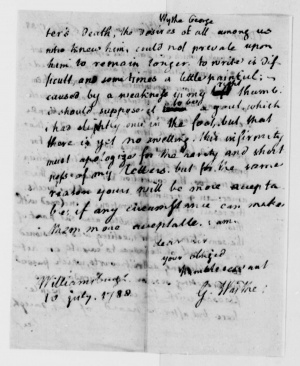 Wythe George
ter's Death, the desires of all among us
who knew him, could not prevale upon
him to remain longer. to write is dif-
ficult and sometimes a little painful;
caused by a weakness in my thumb.
i should suppose it to be a gout, which
i had slightly one in the foot, but, that
there is yet no swelling. this infirmity
must apologize for the rarity and short
ness of my letters. but for the same
reason yours will be more accepta
ble; if any circumstance can make
them more acceptable. i am,
dear sir
your obliged
humble servant
Williamsburgh
10 july, 1788
G. Wythe: